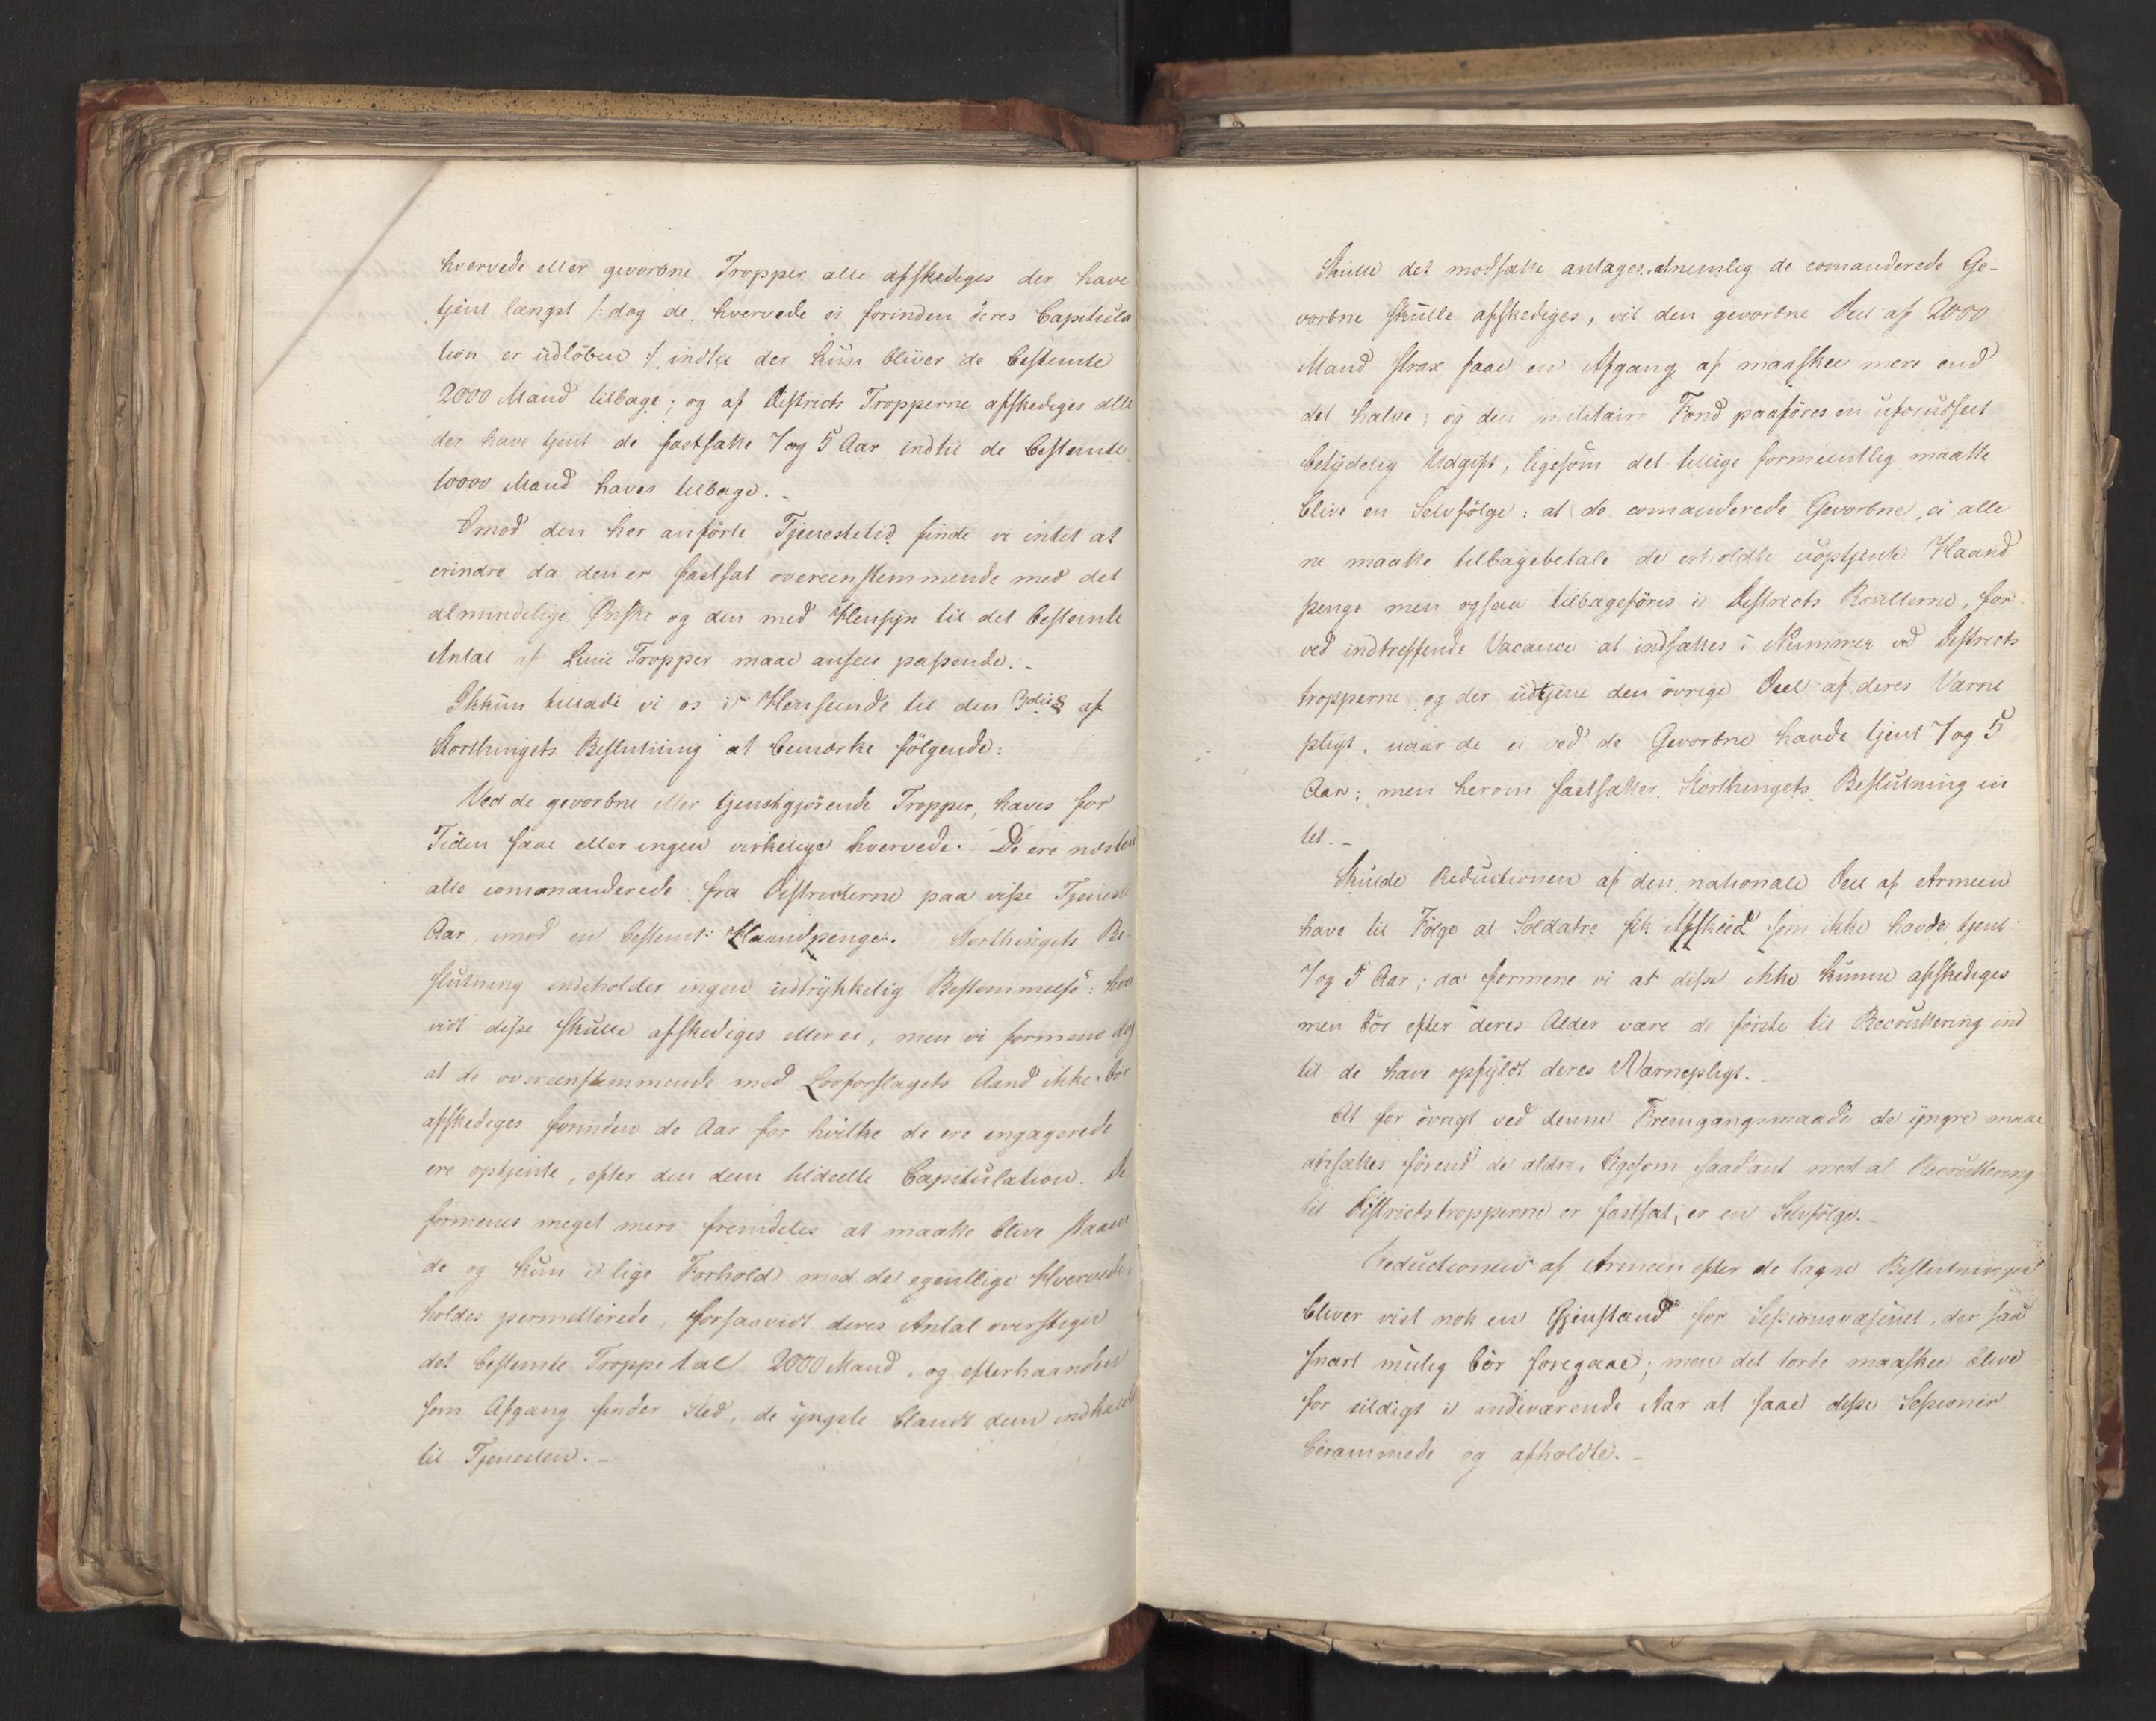 hvervede eller gevorbne Tropper alle afskediges der have
tjent længst /: dog de hvervede ei forinden deres Capitula
tion er udløben :/ indtil der kun bliver de bestemte
2000 Mand tilbage; og af Districts Tropperne afskediges alle
der have tjent de fastsatte 7 og 5 Aar indtil de bestemte
10000 Mand haves tilbage. -
Imod den her anførte Tjenestetid finde vi intet at
erindre da den er fastsat overeenstemmende med det
almindelige Ønske og den med Hensyn til det bestemte
Antal af Linie Tropper maae ansees passende. -
Ikkun tillade vi os i Henseende til den af
Storthingets Beslutning at bemærke følgende:
Ved de gevorbne eller tjenstgjørende Tropper, haves for
Tiden faae eller ingen virkelige hvervede. De ere næsten
alle commanderede fra Districterne paa visse Tjeneste
Aar, imod en bestemt Haandpenge. Storthingets Be-
slutning indeholder ingen udtrykkelig Bestemmelse: hvor
vidt disse skulle afskediges eller ei, men vi formene dog
at de overeenstemmende med Lovforslagets Aand ikke bør
afskediges forinden de Aar for hvilke de ere engagerede
ere optjente, efter den dem tildeelte Capitulation. De
formenes meget mere fremdeles at maatte blive staaen
de og kun i lige Forhold med de egentlige Hvervede,
holdes permitterede, forsaavidt deres Antal overstiger
det bestemte Troppetal 2000 Mand, og efterhaanden
som Afgang finder Sted, de yngste blandt dem indkaldes
til Tjenesten. -
Skulle det modsatte antages, at nemlig de comanderede Ge-
vorbne skulle afskediges, vil den gevorbne Deel af 2000
Mand strax faae en Afgang af maaskee mere end
det halve; og den militaire Fond paaføres en uforudseet
betydelig Udgift, ligesom det tillige formeentlig maatte
blive en Selvfølge: at de comanderede Gevorbne, ei alle
ne maatte tilbagebetale de erholdte uoptjente Haand
penge men ogsaa tilbageføres i Districts Roullerne, for
ved indtreffende Vacance at indsættes i Nummer ved Districts
tropperne og der udtjene den øvrige Deel af deres Værne
pligt, naar de ei ved de Gevorbne havde tjent 7 og 5
Aar; men herom fastsætter Storthingets Beslutning in
tet. -
Skulde Reductionen af den nationale Deel af Armeen
have til Følge at Soldatre fik Afskeed som ikke havde tjent
7 og 5 Aar; da formene vi at disse ikke kunne afskediges
men bør efter deres Alder være de første til Recruttering ind
til de have opfyldt deres Værnepligt. -
At for øvrigt ved denne Fremgangsmaade de yngre maae
afsættes førend de ældre, ligesom saadant med al Recruttering
til Districtstropperne er fastsat, er en Selvfølge. -
Reductionen af Armeen efter de tagne Beslutninger
bliver vist nok en Gjenstand for Sessionsvæsenet, der saa
snart mulig bør foregaae; men det torde maaskee blive
for sildigt i indeværende Aar at faae disse Sessioner
berammede og afholdte. -